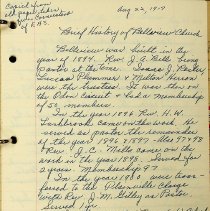 Copied from
old paper taken
from Cornerstone
of E.H.S.
Aug 22, 1919
Brief History of Bellview Church
Bellview was built in the
year of 1884. Rev. J. G. Bells being
Pastor at the time. Isaac J. Parker
Lucius Plummer & Milton Heron
were the trustees. It was then on
the Odon Circuit & had a membership
of 52 members.
In the year 1896 Rev. H. W.
came on the work. He
served as pastor the remainder
of the year 1896 & 1897. Then 1898
Rev. J. C. Mells came on the
work in the year 1898. Served for
2 years. Membership 97.
In the year 1900 it were trans-
ferred to the Plainville Charge
with Rev. J. M. Gilley as Pastor.
Served 1 yr.